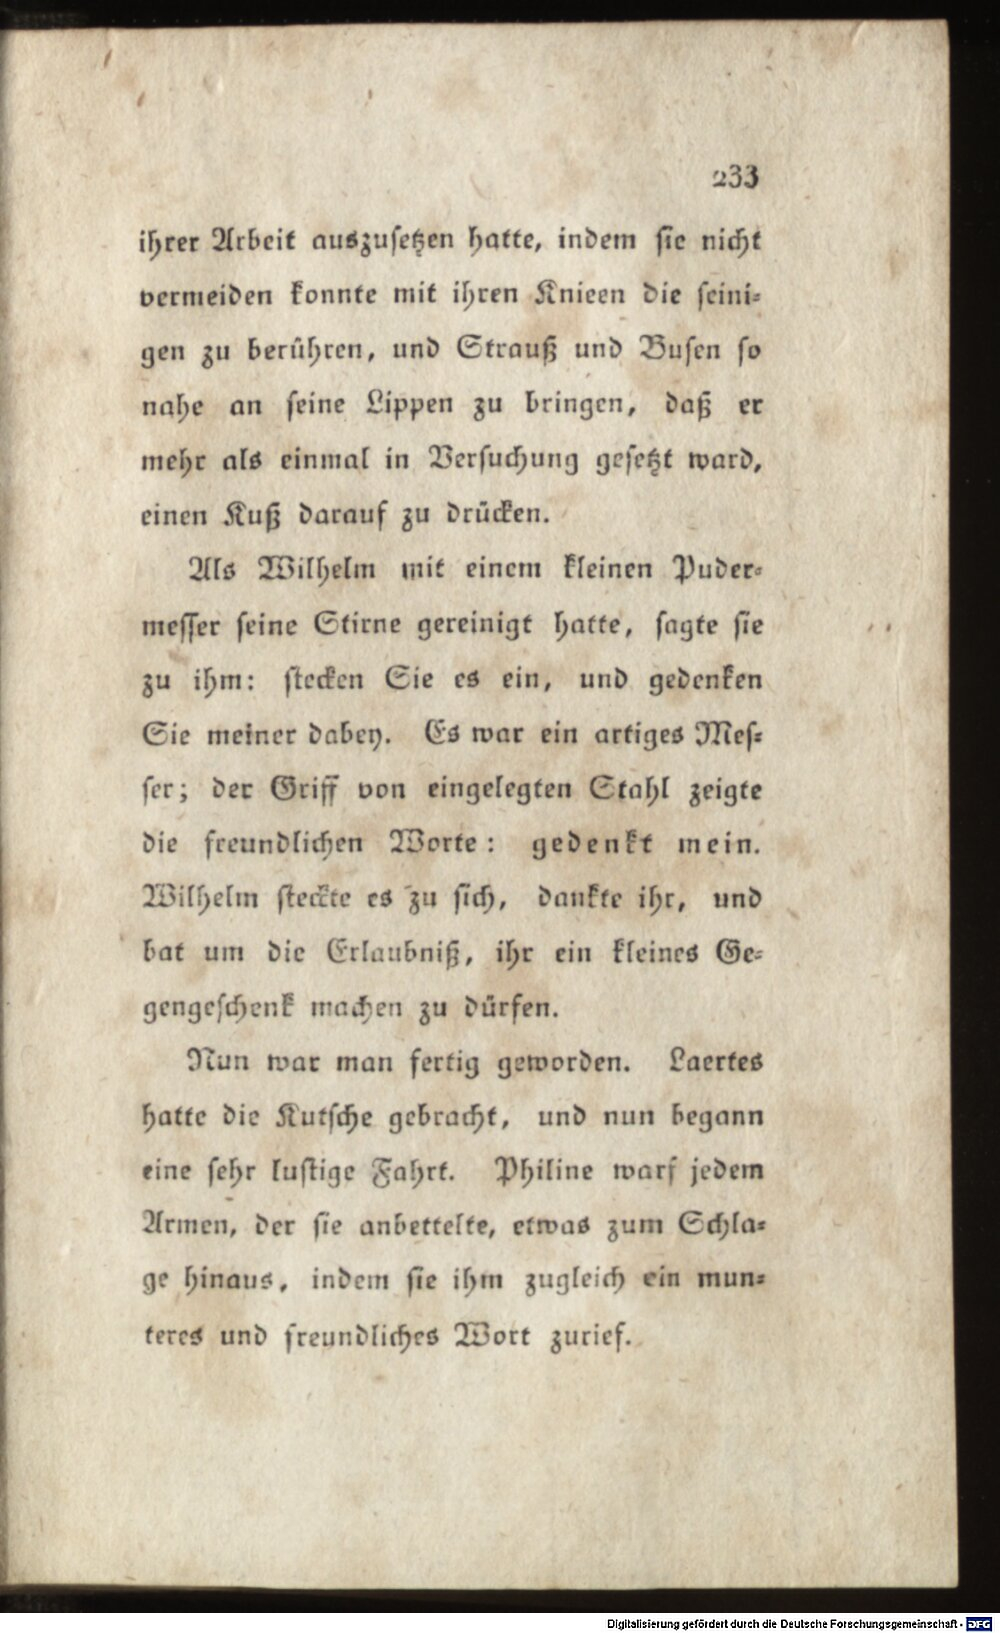 233
ihrer Arbeit auszusetzen hatte, indem sie nicht
vermeiden konnte mit ihren Knieen die seini-
gen zu berühren, und Strauß und Busen so
nahe an seine Lippen zu bringen, daß er
mehr als einmal in Versuchung gesetzt ward,
einen Kuß darauf zu drücken.
Als Wilhelm mit einem kleinen Puder-
messer seine Stirne gereinigt hatte, sagte sie
zu ihm: stecken Sie es ein, und gedenken
Sie meiner dabey. Es war ein artiges Mes-
ser; der Griff von eingelegten Stahl zeigte
die freundlichen Worte: gedenkt mein.
Wilhelm steckte es zu sich, dankte ihr, und
bat um die Erlaubniß, ihr ein kleines Ge-
gengeschenk machen zu dürfen.
Nun war man fertig geworden. Laertes
hatte die Kutsche gebracht, und nun begann
eine sehr lustige Fahrt. Philine warf jedem
Armen, der sie anbettelte, etwas zum Schla-
ge hinaus, indem sie ihm zugleich ein mun-
teres und freundliches Wort zurief.
Digitalisierung gefördert durch die Deutsche Forschungsgemeinschaft - DFG